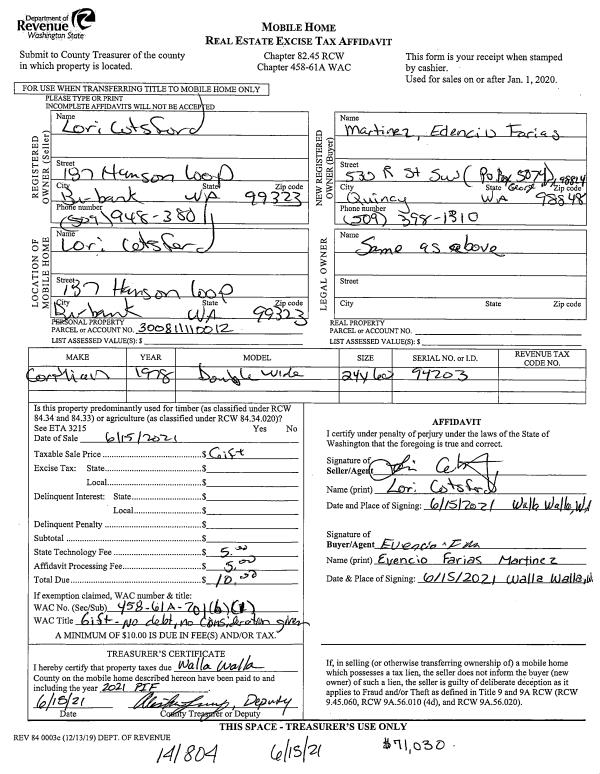 Department of
Revenue
Washington State
MOBILE HOME
REAL ESTATE EXCISE TAX AFFIDAVIT
Submit to County Treasurer of the county
in which property is located.
Chapter 82.45 RCW
Chapter 458-61A WAC
This form is your receipt when stamped
by cashier.
Used for sales on or after Jan. 1, 2020.
FOR USE WHEN TRANSFERRING TITLE TO MOBILE HOME ONLY
PLEASE TYPE OR PRINT
INCOMPLETE AFFIDAVITS WILL NOT BE ACCEPTED
REGISTERED OWNER (Seller)
Name
Lori Cotsford
Street
137 Hanson Loop
City State Zip code
Burbank WA 99323
Phone number
(509) 948-3801
NEW REGISTERED OWNER (Buyer)
Name
Martinez, Edencio Farias
Street
530 R St SW (PO Box 5074, George, 98824
City State Zip code
Quincy WA 98848
Phone number
(509) 398-1310
LOCATION OF MOBILE HOME
Name
Lori Cotsford
Street
137 Hanson Loop
City State Zip code
Burbank WA 99323
LEGAL OWNER
Name
Same as above
Street
City State Zip code
PERSONAL PROPERTY
PARCEL or ACCOUNT NO. 300811110012
LIST ASSESSED VALUE(S) $
REAL PROPERTY
PARCEL or ACCOUNT NO.
LIST ASSESSED VALUE(S) $
MAKE YEAR MODEL SIZE SERIAL NO. or I.D. REVENUE TAX CODE NO.
1978 Double wide 24x60 94203
Is this property predominantly used for timber (as classified under RCW
84.34 and 84.33) or agriculture (as classified under RCW 84.34.020)?
See ETA 3215 Yes No
Date of Sale 6/15/2021
Taxable Sale Price $ Gift
Excise Tax: State $
Local $
Delinquent Interest: State $
Local $
Delinquent Penalty $
Subtotal $
State Technology Fee $ 5.00
Affidavit Processing Fee $ 5.00
Total Due $ 10.00
If exemption claimed, WAC number & title:
WAC No. (Sec/Sub) 458-61A-201(b)(1)
WAC Title Gift-No debt, no consideration given
A MINIMUM OF $10.00 IS DUE IN FEE(S) AND/OR TAX.
AFFIDAVIT
I certify under penalty of perjury under the laws of the State of
Washington that the foregoing is true and correct.
Signature of
Seller/Agent
Name (print) Lori Cotsford
Date and Place of Signing: 6/15/2021 Walla Walla, WA
Signature of
Buyer/Agent
Name (print) Evencio Farias Martinez
Date & Place of Signing: 6/15/2021 Walla Walla, W
TREASURER'S CERTIFICATE
I hereby certify that property taxes due Walla Walla
County on the mobile home described hereon have been paid to and
including the year 2021 PIF
6/15/21 Deputy
Date County Treasurer or Deputy
If, in selling (or otherwise transferring ownership of) a mobile home
which possesses a tax lien, the seller does not inform the buyer (new
owner) of such a lien, the seller is guilty of deliberate deception as it
applies to Fraud and/or Theft as defined in Title 9 and 9A RCW (RCW
9.45.060, RCW 9A.56.010 (4d), and RCW 9A.56.020).
THIS SPACE - TREASURER'S USE ONLY
REV 84 0003c (12/13/19) DEPT. OF REVENUE
141804 6/15/21 $71,030.